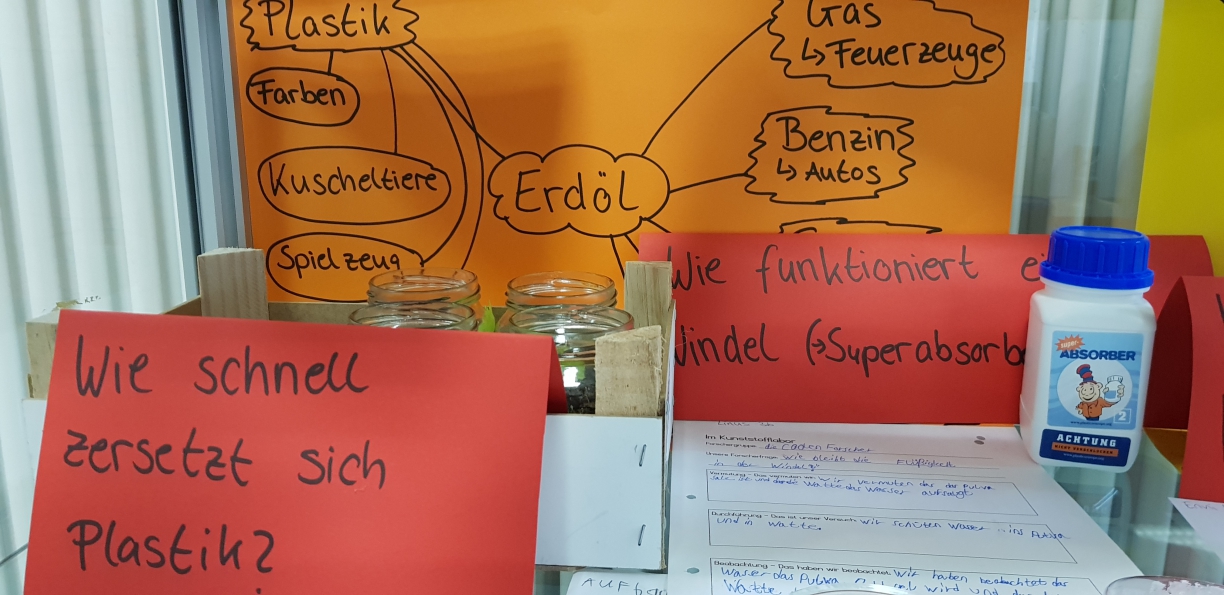 Plastik
Farben
Kuscheltiere
Spielzeug
Erdöl
Gas
↳ Feuerzeuge
Benzin
↳ Autos
Wie funktioniert
Windel (→Superabsorbe
Wie schnell
zersetzt sich
Plastik?
super
ABSORBER
2
ACHTUNG
NICHT VERSCHLUCKEN
Im Kunststofflabor
Forschergruppe: die Coolen Forscher
Unsere Forscherfrage: Wie bleibt die Flüßigkeit
in der Windel?
Vermutung - Das vermuten wir: Wir vermuten das das Pulva
und die Watte das Wasser aufsaugt
Durchführung - Das ist unser Versuch: Wir schüten Wasser ins Pulva
und in Watte.
Beobachtung - Das haben wir beobachtet: Wir haben beobachtet das
Wasser das Pulva wird und
Watte